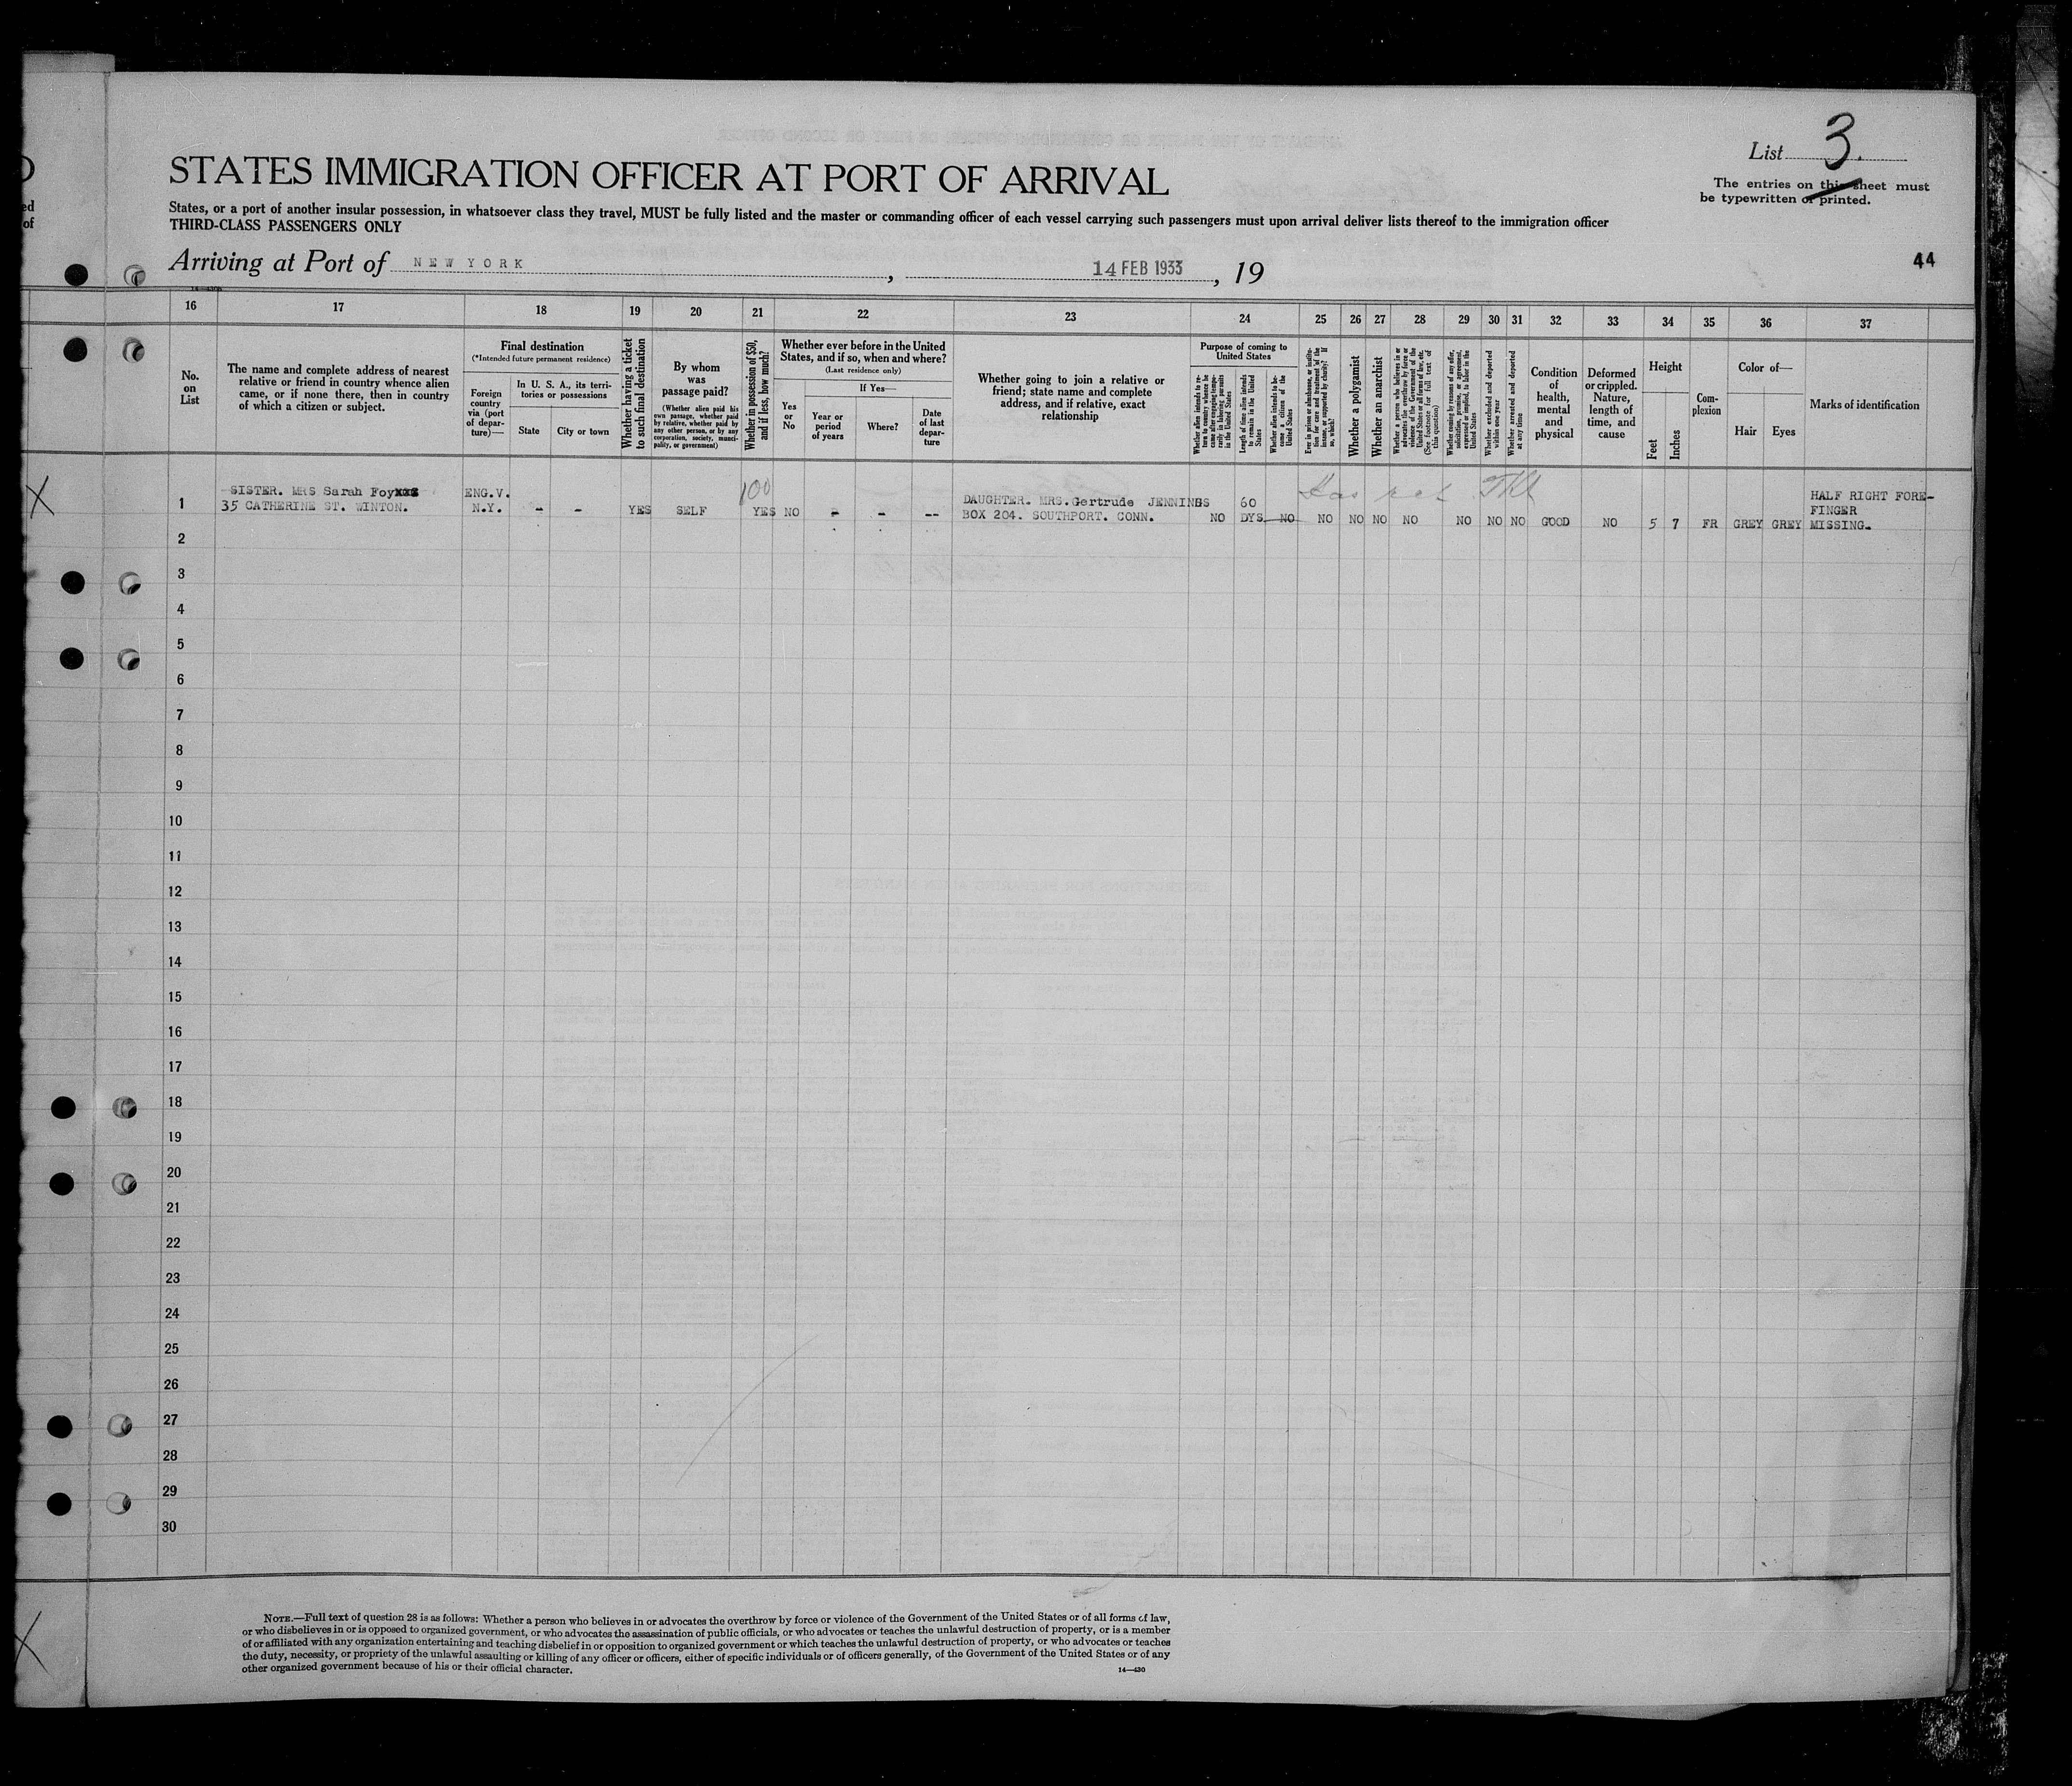 List 3.
The entries on this sheet must
be typewritten or printed.
STATES IMMIGRATION OFFICER AT PORT OF ARRIVAL
States, or a port of another insular possession, in whatsoever class they travel, MUST be fully listed and the master or commanding officer of each vessel carrying such passengers must upon arrival deliver lists thereof to the immigration officer
THIRD-CLASS PASSENGERS ONLY
Arriving at Port of NEW YORK, 14 FEB 1933, 19
44
ed
of
16 17 18 19 20 21 22 23 24 25 26 27 28 29 30 31 32 33 34 35 36 37
No.
on
List
The name and complete address of nearest
relative or friend in country whence alien
came, or if none there, then in country
of which a citizen or subject.
Final destination
(*Intended future permanent residence)
Foreign
country
via (port
of depar-
ture)—
In U. S. A., its terri-
tories or possessions
State
City or town
Whether having a ticket
to such final destination
By whom
was
passage paid?
(Whether alien paid his
own passage, whether paid
by relative, whether paid by
any other person, or by any
corporation, society, munici-
pality, or government)
Whether in possession of $50,
and if less, how much?
Whether ever before in the United
States, and if so, when and where?
(Last residence only)
Yes
or
No
If Yes—
Year or
period
of years
Where?
Date
of last
depar-
ture
Whether going to join a relative or
friend; state name and complete
address, and if relative, exact
relationship
Purpose of coming to
United States
Whether alien intends to re-
turn to country whence he
came after engaging tempo-
rarily in laboring pursuits
in the United States
Length of time alien intends
to remain in the United
States
Whether alien intends to be-
come a citizen of the
United States
Ever in prison or almshouse, or institu-
tion for care and treatment of the
insane, or supported by charity? If
so, which?
Whether a polygamist
Whether an anarchist
Whether a person who believes in or
advocates the overthrow by force or
violence of the Government of the
United States or all forms of law, etc.
(See footnote for full text of
this question)
Whether coming by reasons of any offer,
solicitation, promise, or agreement,
expressed or implied, to labor in the
United States
Whether excluded and deported
within one year
Whether arrested and deported
at any time
Condition
of
health,
mental
and
physical
Deformed
or crippled.
Nature,
length of
time, and
cause
Height
Feet
Inches
Com-
plexion
Color of—
Hair
Eyes
Marks of identification
X
1
SISTER. MRS Sarah Foyxxx
35 CATHERINE ST. WINTON.
ENG.V.
N.Y.
- -
YES
SELF
100
YES
NO
- - --
DAUGHTER. MRS.Gertrude JENNINGS
BOX 204. SOUTHPORT. CONN.
NO
60
DYS
NO
Has ret Tkt
NO NO NO NO NO NO NO
GOOD
NO
5 7
FR
GREY GREY
HALF RIGHT FORE-
FINGER
MISSING.
2
3
4
5
6
7
8
9
10
11
12
13
14
15
16
17
18
19
20
21
22
23
24
25
26
27
28
29
30
X
NOTE.—Full text of question 28 is as follows: Whether a person who believes in or advocates the overthrow by force or violence of the Government of the United States or of all forms of law,
or who disbelieves in or is opposed to organized government, or who advocates the assassination of public officials, or who advocates or teaches the unlawful destruction of property, or is a member
of or affiliated with any organization entertaining and teaching disbelief in or opposition to organized government or which teaches the unlawful destruction of property, or who advocates or teaches
the duty, necessity, or propriety of the unlawful assaulting or killing of any officer or officers, either of specific individuals or of officers generally, of the Government of the United States or of any
other organized government because of his or their official character.
14—430